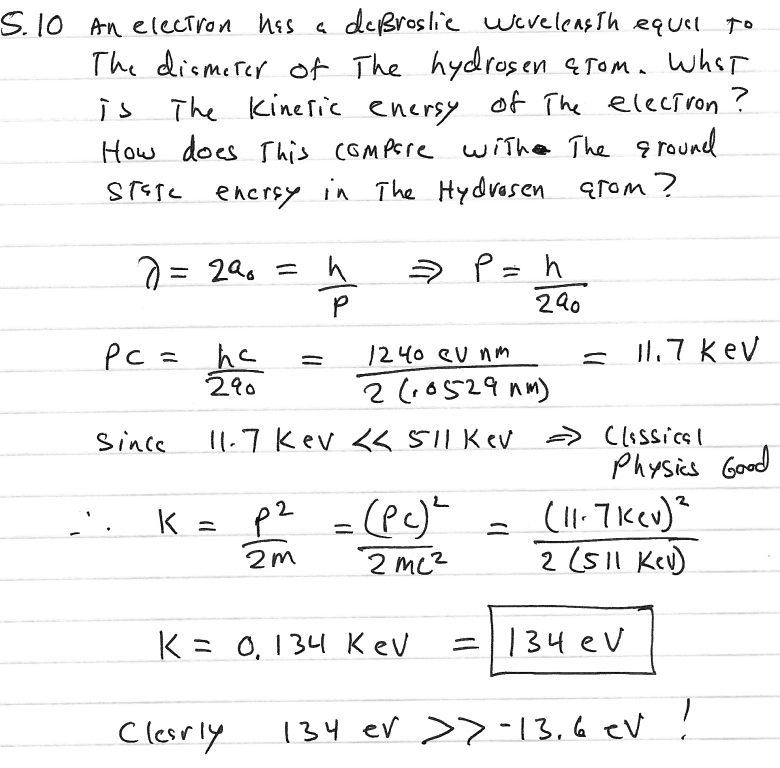 5.10 An electron has a deBroglie wavelength equal to
The diameter of The hydrogen atom. What
is The Kinetic energy of The electron?
How does This compare with The ground
State energy in The Hydrogen atom?
λ = 2a₀ = h/P ⇒ P = h/2a₀
PC = hc/2a₀ = 1240 eV nm/2(.0529 nm) = 11.7 KeV
Since 11.7 KeV << 511 KeV ⇒ Classical
Physics Good
∴ K = P²/2m = (PC)²/2mc² = (11.7 KeV)²/2(511 KeV)
K = 0.134 KeV = 134 eV
Clearly 134 eV >> -13.6 eV !